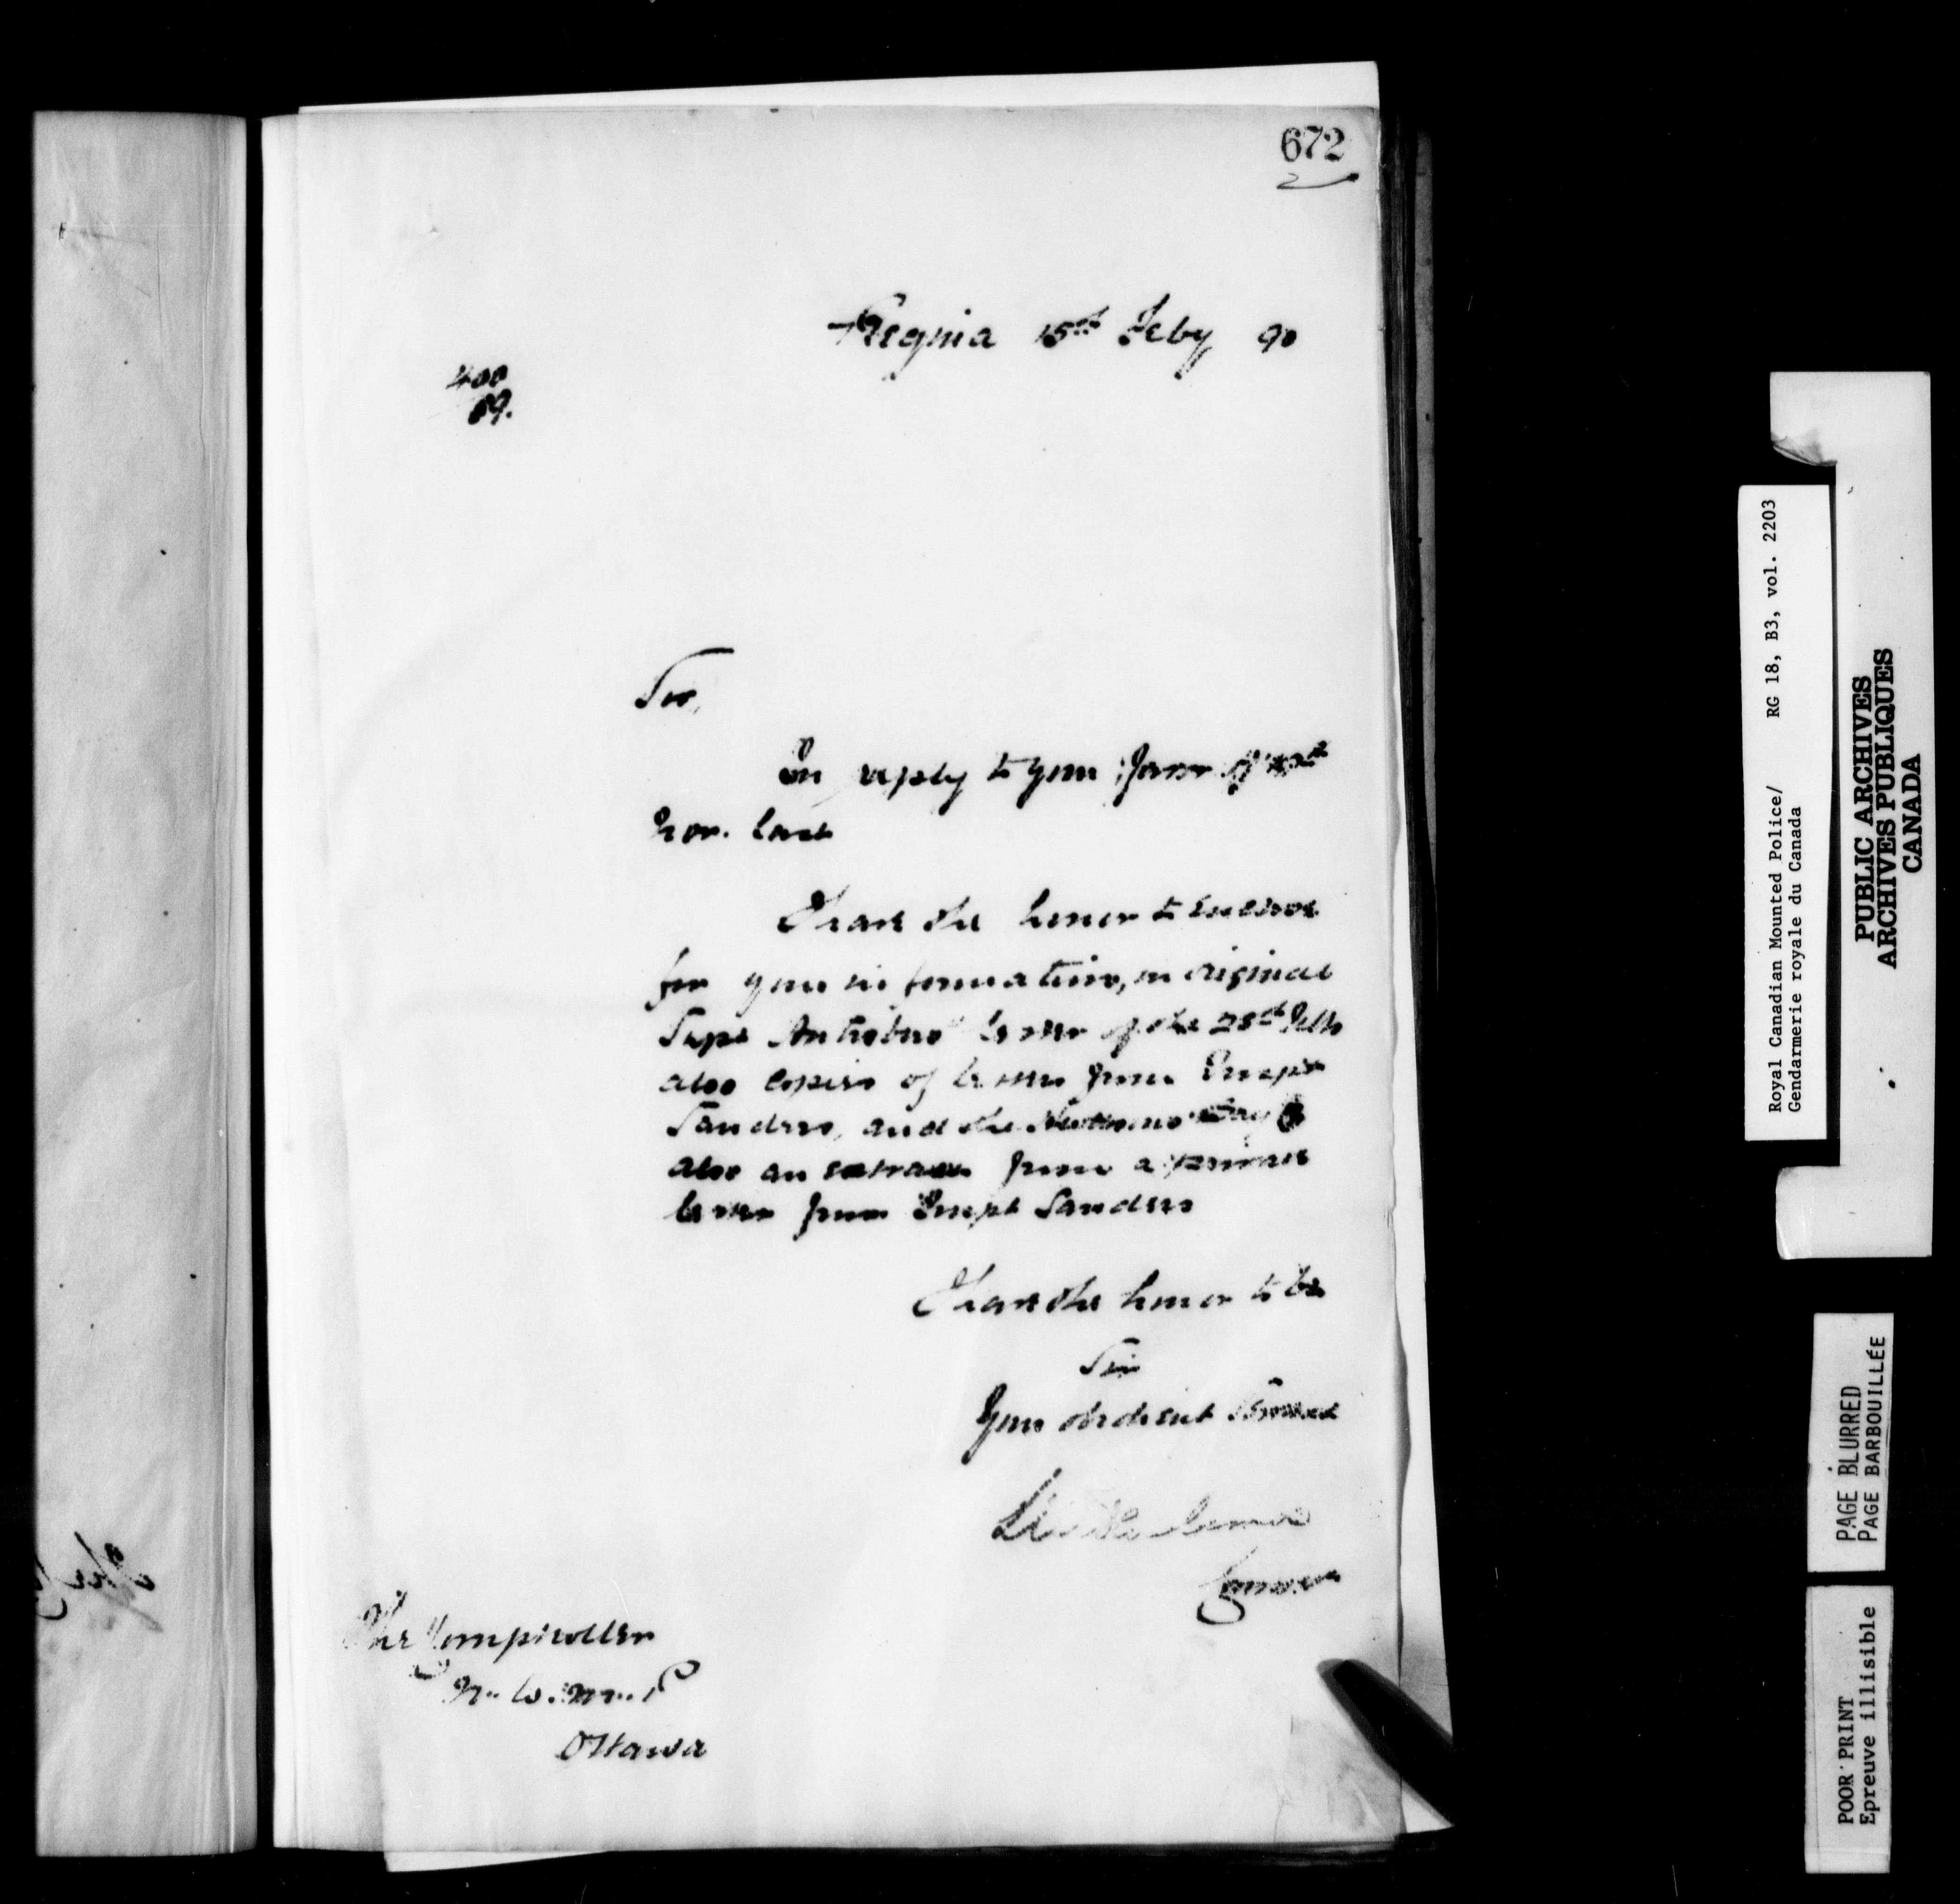 672
Regina 15th Feby 90
400
89.
Sir,
In reply to your favor of
Nov. last
I have the honor to enclose
for your information, in original
Supt Antrobus' letter of the 28th
also copies of letters from Inspr
Sanders, and the
also an extract from a private
letter from Inspt Sanders
I have the honor to be
Sir
Your obedient Servant
Commr
The Comptroller
N. W. M. P
Ottawa
Royal Canadian Mounted Police/ RG 18, B3, vol. 2203
Gendarmerie royale du Canada
PUBLIC ARCHIVES
ARCHIVES PUBLIQUES
CANADA
PAGE BLURRED
PAGE BARBOUILLÉE
POOR PRINT
Epreuve illisible